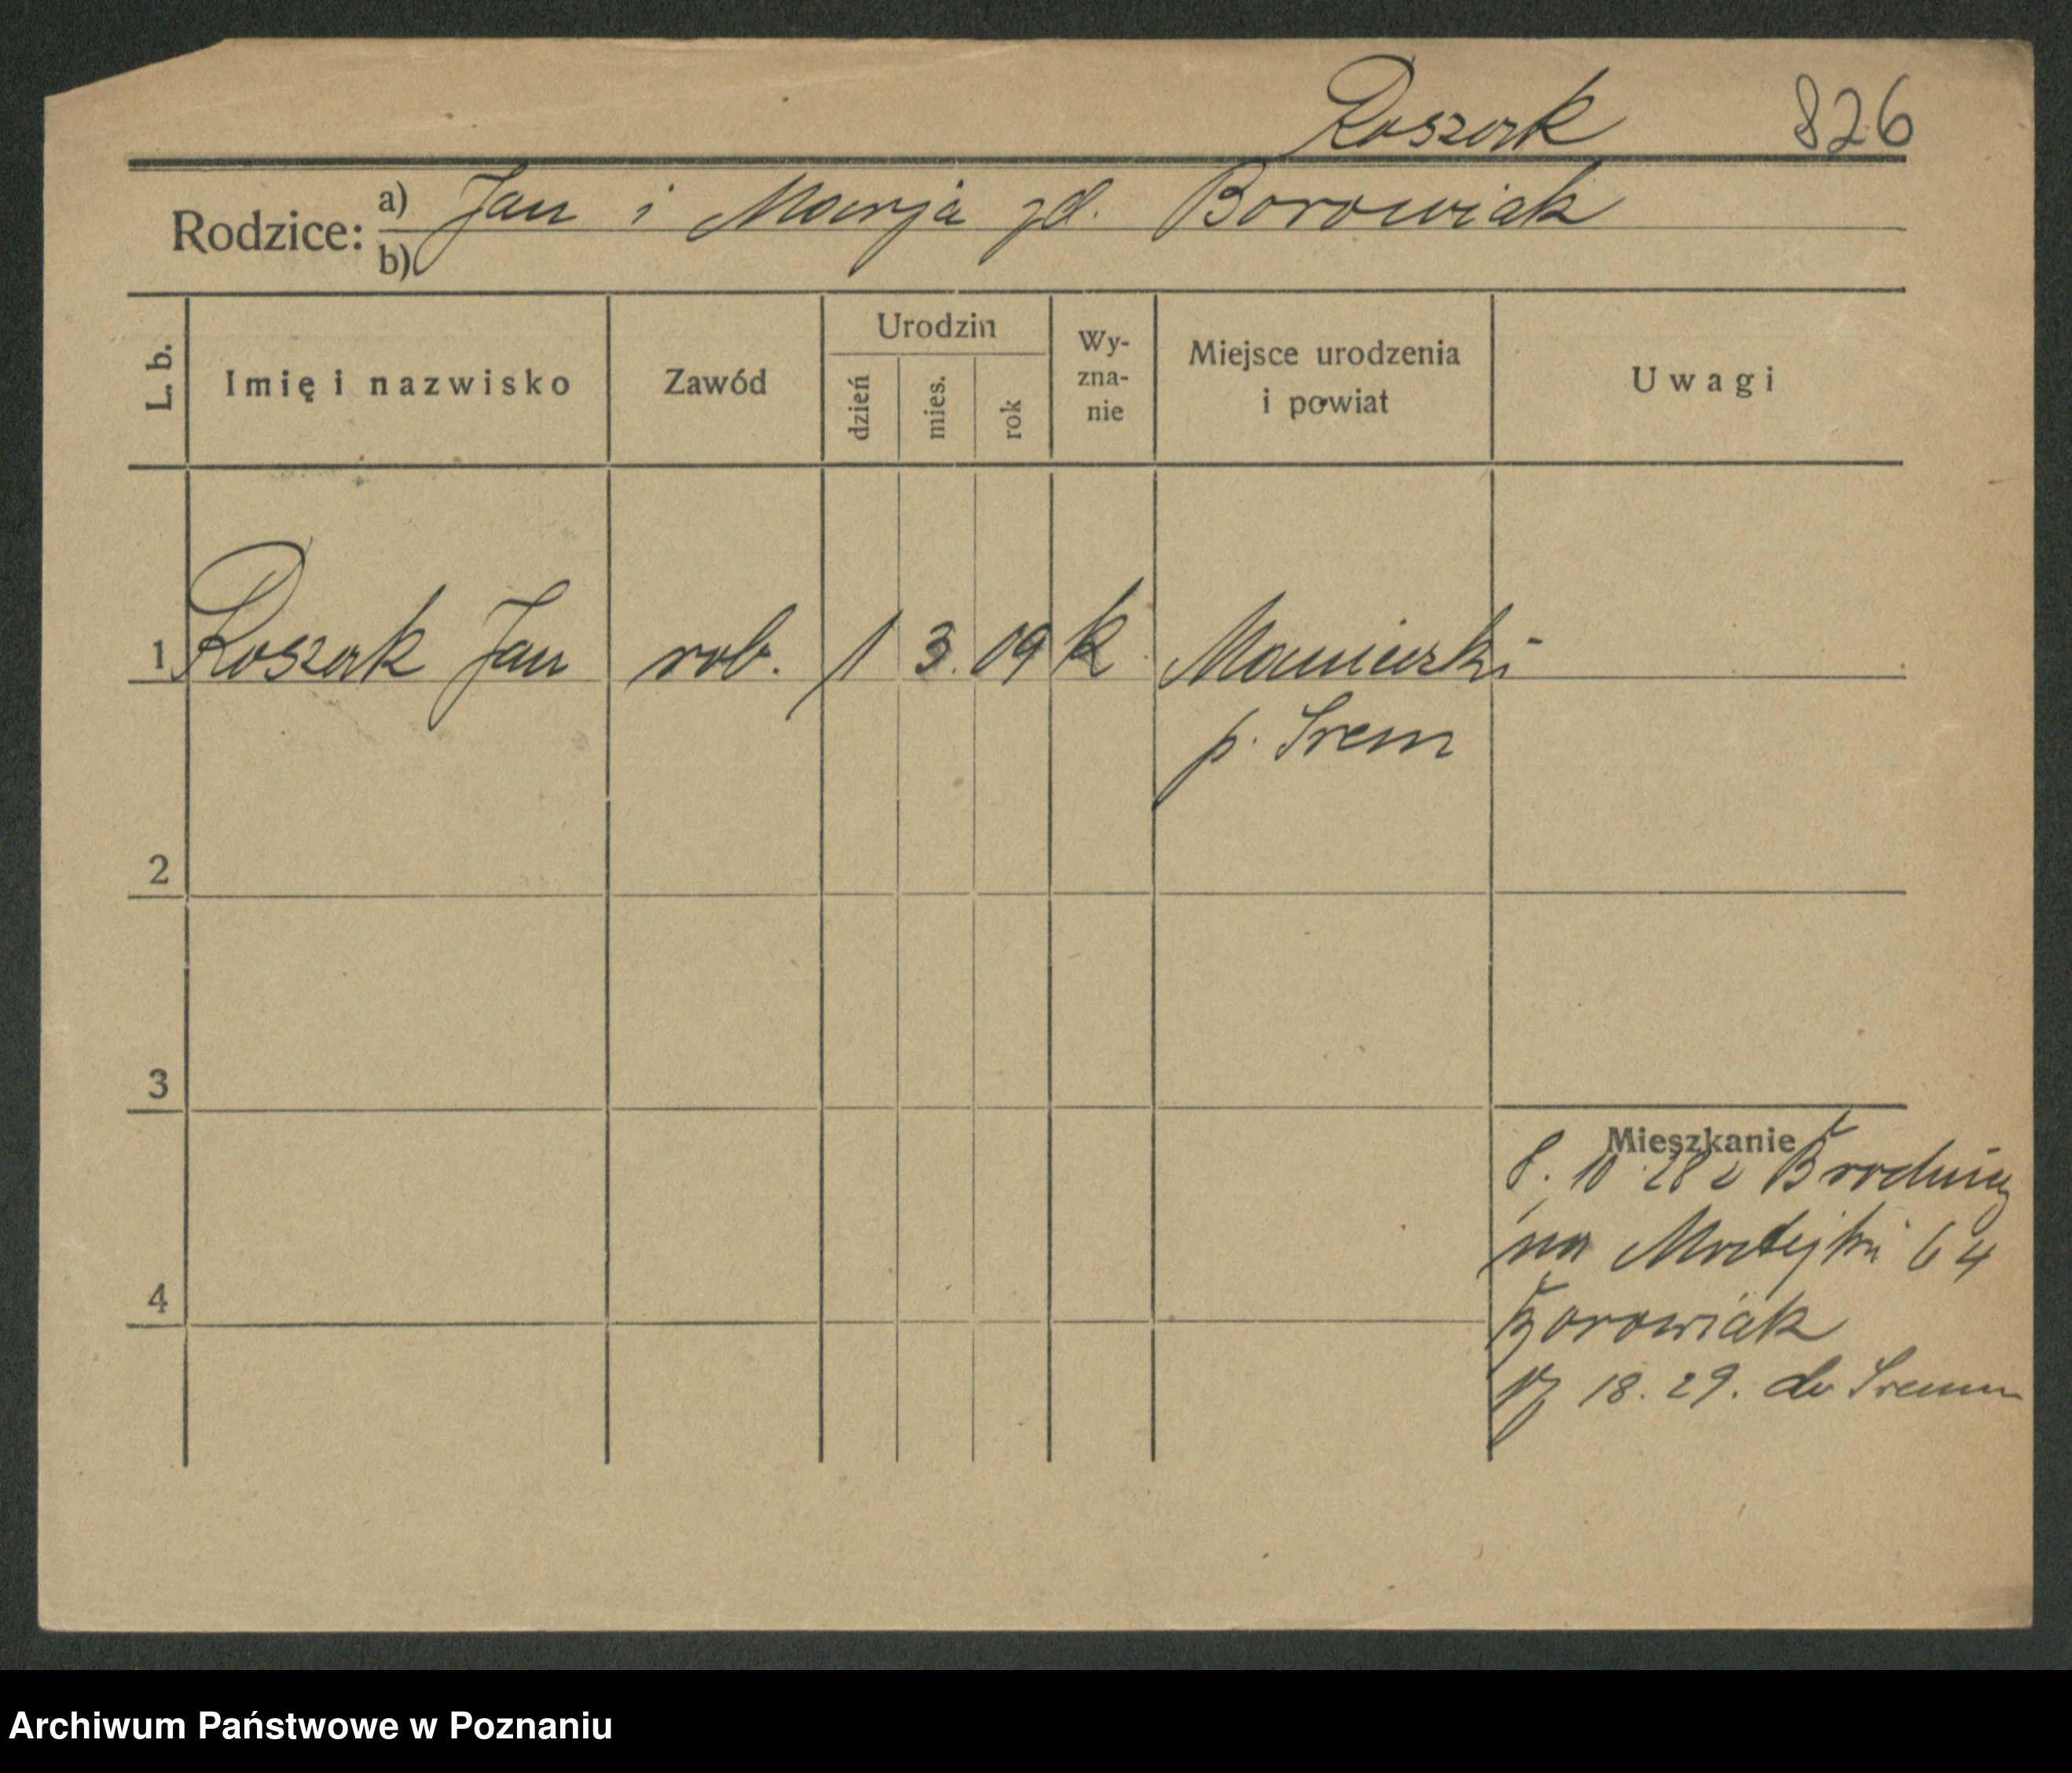 Roszak 826
Rodzice: a) Jan i Marja zd. Borowiak
b)
L. b. Imię i nazwisko Zawód Urodzin dzień mies. rok Wy-zna-nie Miejsce urodzenia i powiat Uwagi
1 Roszak Jan rob. 1 3. 09 k Manieczki
p. Śrem
2
3
Mieszkanie
8. 10 28 z Brodnicy
na Matejki 64
4
Borowiak
18. 29. do Śremu
Archiwum Państwowe w Poznaniu